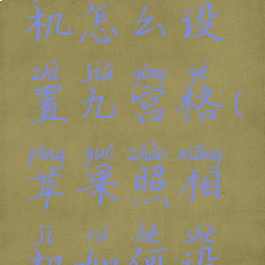 机怎么设
zhì jiǔ gōng gé
置九宫格(
píng guǒ zhào xiàng
苹果照相
jī rú hé shè
机如何设